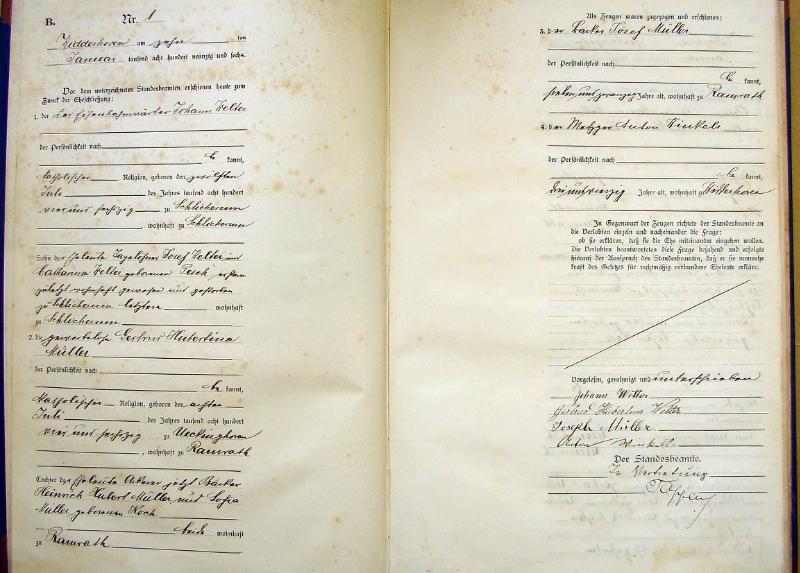 B. Nr. 1
am zehn ten
Januar tausend acht hundert neunzig und sechs.
Vor dem unterzeichneten Standesbeamten erschienen heute zum
Zweck der Eheschließung:
1. der der Eisenbahnwärter Johann Velter
der Persönlichkeit nach
be kannt,
katholischer Religion, geboren den zwölften
Juli des Jahres tausend acht hundert
vier und sechzig zu Schlicherum
, wohnhaft zu Schlicherum
Sohn der Eheleute Tagelöhner Josef Velter und
Catharina Velter geborenen Pesch, ersterer
zuletzt wohnhaft gewesen und gestorben
zu Schlicherum letztere wohnhaft
zu Schlicherum
2. die gewerbelose Gertrud Hubertina
Müller
der Persönlichkeit nach
be kannt,
katholischer Religion, geboren den achten
Juli des Jahres tausend acht hundert
vier und sechzig zu Ueckinghoven
, wohnhaft zu Ramrath
Tochter der Eheleute Ackerer jetzt Bäcker
Heinrich Hubert Müller und Sofia
Müller geborenen Koch
beide wohnhaft
zu Ramrath
Als Zeugen waren zugezogen und erschienen:
3. der Bäcker Josef Müller
der Persönlichkeit nach
be kannt,
sieben und zwanzig Jahre alt, wohnhaft zu Ramrath
4. der Metzger Anton Winkels
der Persönlichkeit nach
be kannt,
Jahre alt, wohnhaft zu
In Gegenwart der Zeugen richtete der Standesbeamte an
die Verlobten einzeln und nacheinander die Frage:
ob sie erklären, daß sie die Ehe miteinander eingehen wollen.
Die Verlobten beantworteten diese Frage bejahend und erfolgte
hierauf der Ausspruch des Standesbeamten, daß er sie nunmehr
kraft des Gesetzes für rechtmäßig verbundene Eheleute erkläre.
Vorgelesen, genehmigt und unterschrieben
Johann Welter
Gertrud Hubertina Welter
Joseph Müller
Anton Winkels
Der Standesbeamte.
In Vertretung